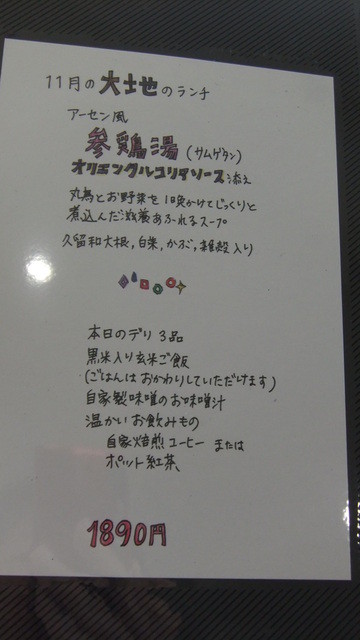 11月の大地のランチ
アーセン風
参鶏湯(サムゲタン)
オリエンタルユリイソース添え
丸鳥とお野菜を1日かけてじっくりと
煮込んだ滋養あふれるスープ
久留和大根,白菜,かぶ,雑穀入り
本日のデリ 3品
黒米入り玄米ご飯
(ごはんはおかわりしていただけます)
自家製味噌のお味噌汁
温かいお飲みもの
自家焙煎コーヒー または
ポット紅茶
1890円